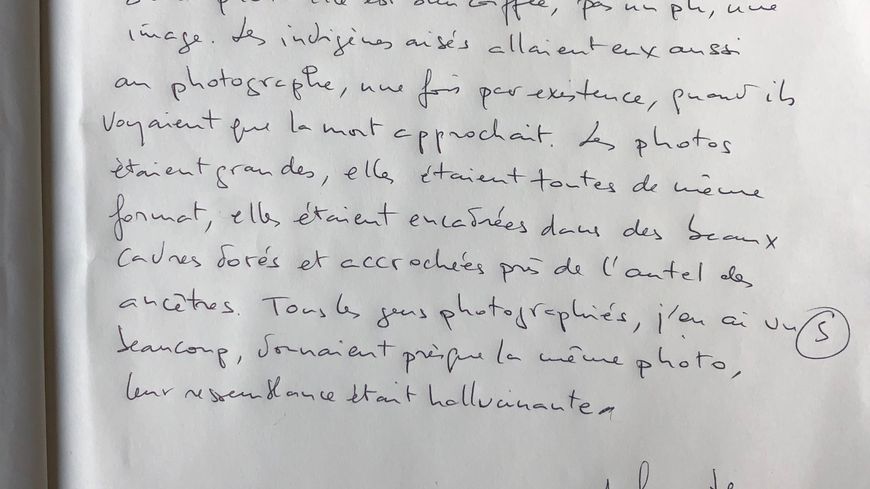 est bien coiffée, pas un pli, une
image. Les indigènes aisés allaient eux aussi
au photographe, une fois par existence, quand ils
voyaient que la mort approchait. Les photos
étaient grandes, elles étaient toutes de même
format, elles étaient encadrées dans des beaux
cadres dorés et accrochées près de l'autel des
ancêtres. Tous les gens photographiés, j'en ai vu S
beaucoup, donnaient presque la même photo,
leur ressemblance était hallucinante.